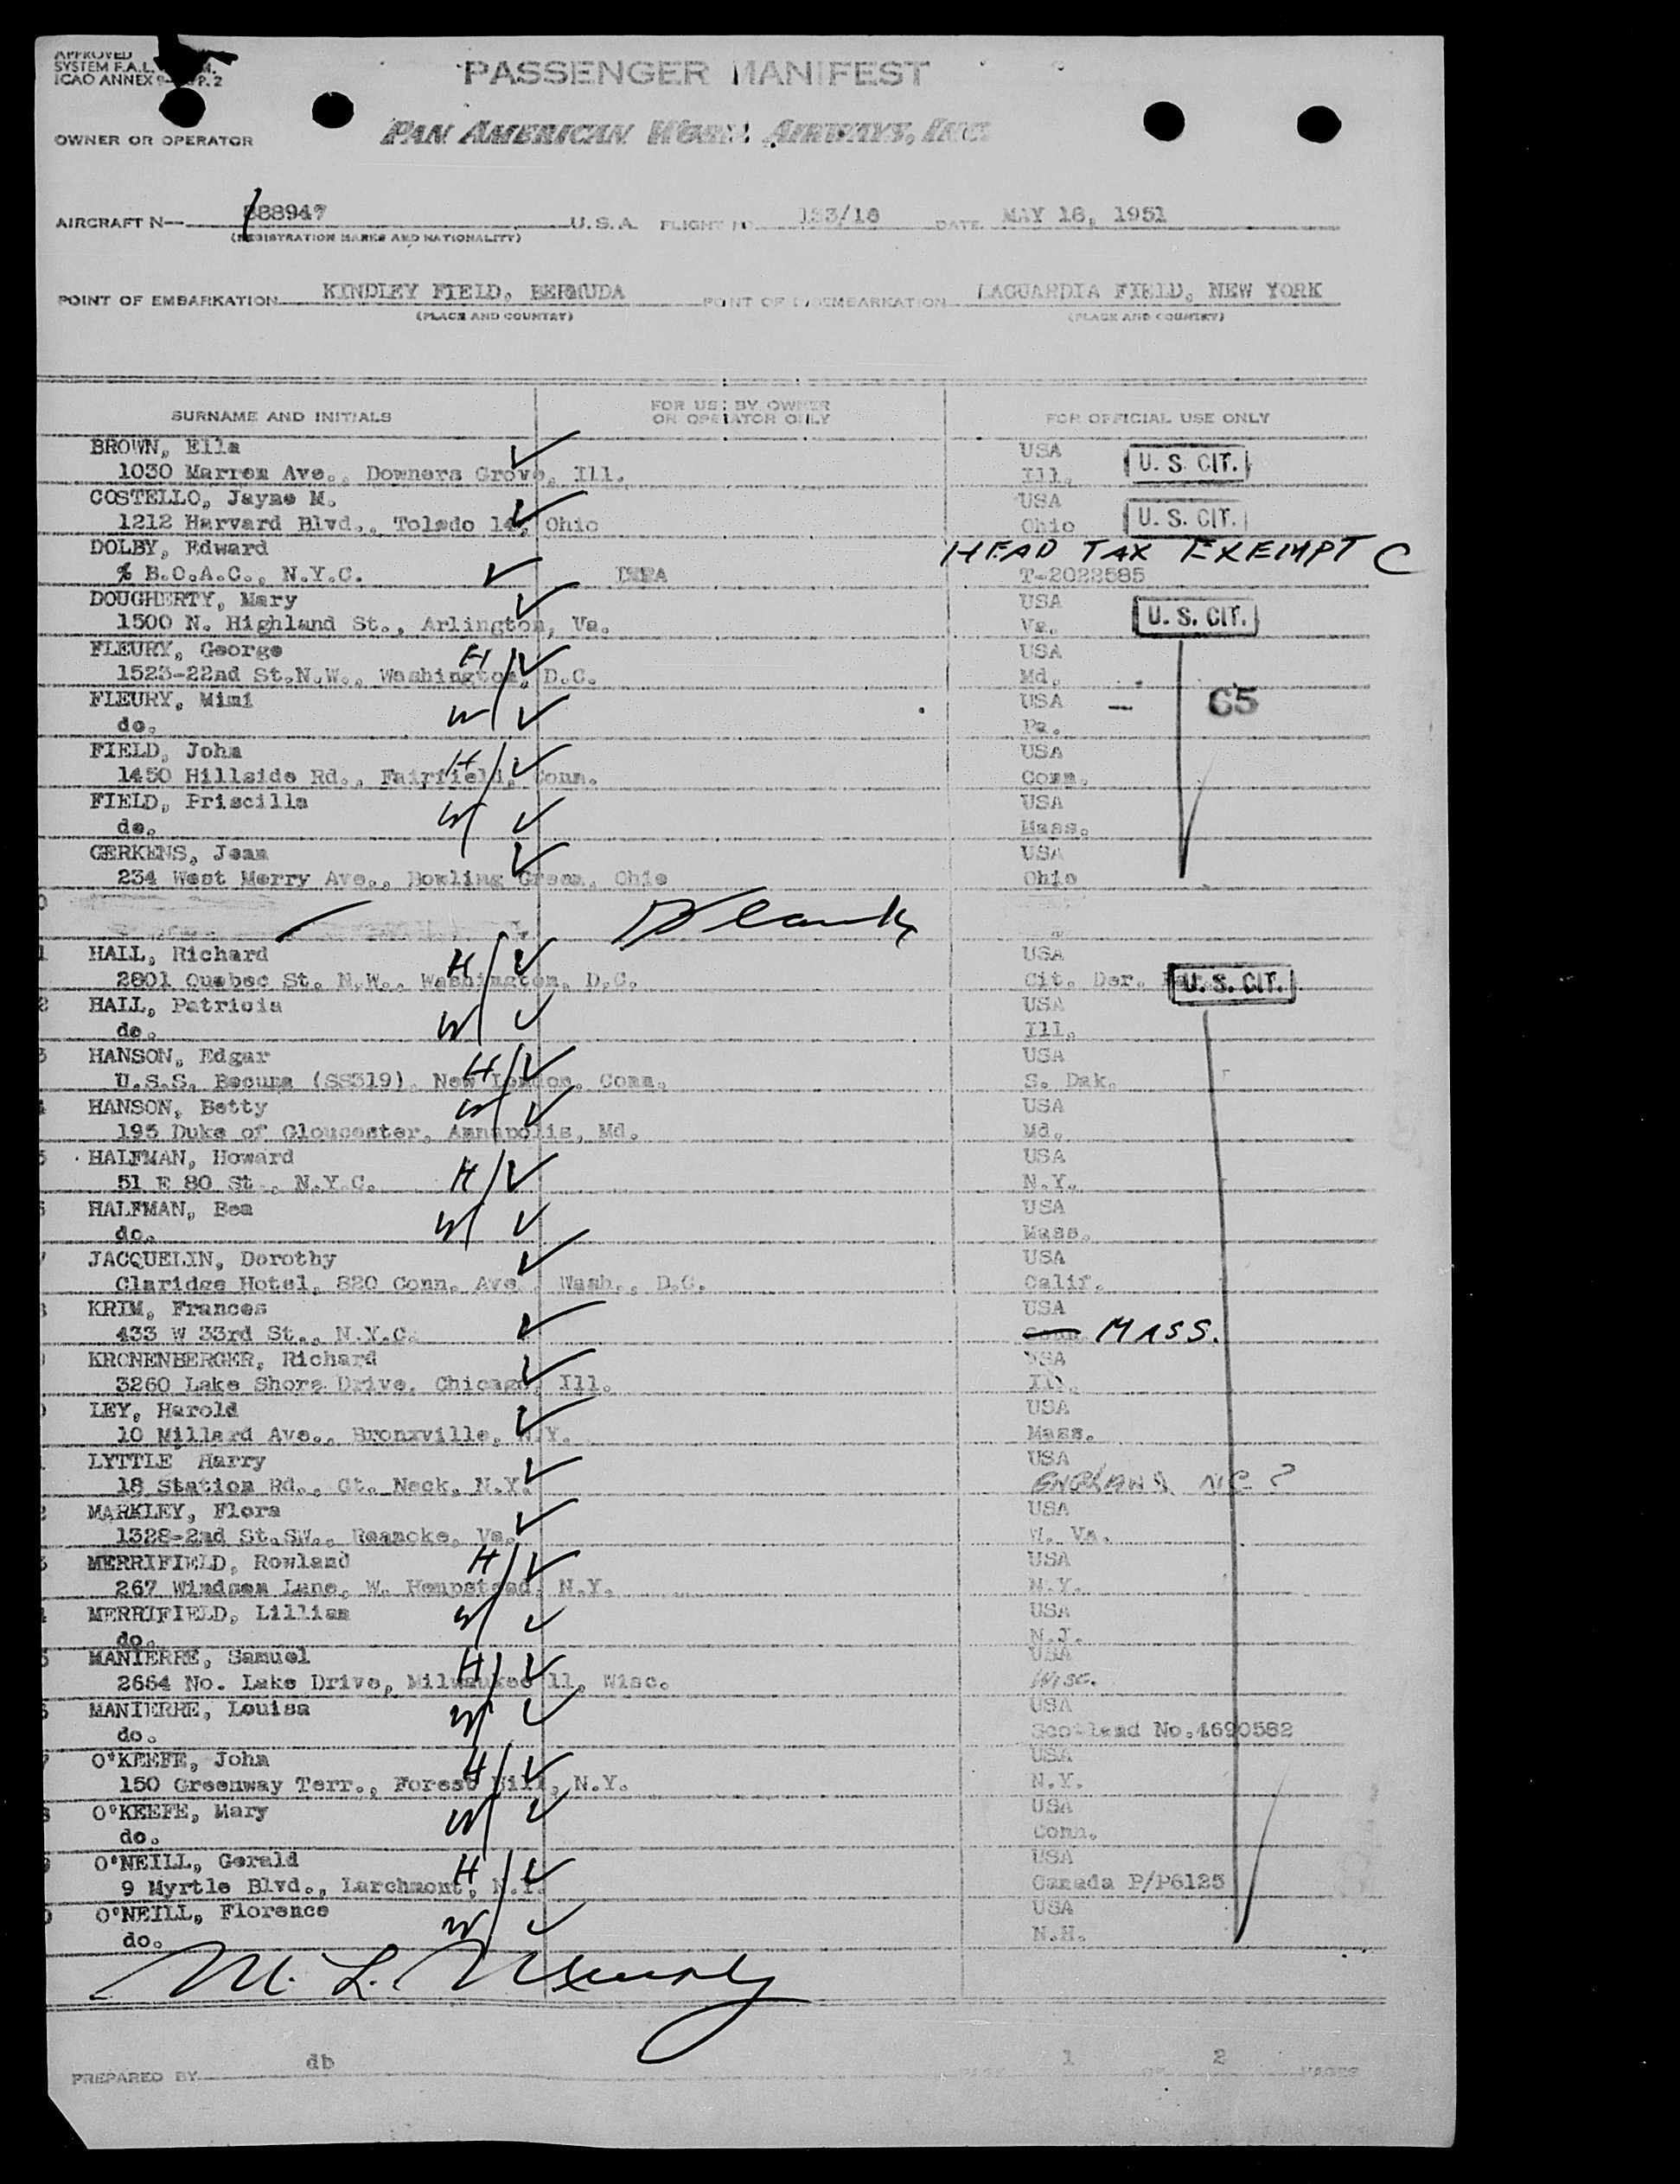 APPROVED
SYSTEM F.A.L.
ICAO ANNEX 9 P. 2
PASSENGER MANIFEST
OWNER OR OPERATOR PAN AMERICAN WORLD AIRWAYS, INC.
AIRCRAFT N— 888947 U.S.A. FLIGHT NO. DATE MAY 18, 1951
(REGISTRATION MARKS AND NATIONALITY)
POINT OF EMBARKATION KINDLEY FIELD, BERMUDA POINT OF DISEMBARKATION LAGUARDIA FIELD, NEW YORK
(PLACE AND COUNTRY) (PLACE AND COUNTRY)
SURNAME AND INITIALS FOR USE BY OWNER OR OPERATOR ONLY FOR OFFICIAL USE ONLY
BROWN, Ella USA
1030 Marren Ave., Downers Grove, Ill. Ill. U. S. CIT.
COSTELLO, Jayne M. USA
1212 Harvard Blvd., Toledo 14, Ohio Ohio U. S. CIT.
DOLBY, Edward HEAD TAX EXEMPT C
% B.O.A.C., N.Y.C. T-2022585
DOUGHERTY, Mary USA
1500 N. Highland St., Arlington, Va. Va. U. S. CIT.
FLEURY, George H USA
1523-22nd St.N.W., Washington, D.C. Md.
FLEURY, Mimi W USA — 65
do. Pa.
FIELD, John H USA
1450 Hillside Rd., Fairfield, Conn. Conn.
FIELD, Priscilla W USA
do. Mass.
GERKENS, Jean USA
234 West Merry Ave., Bowling Green, Ohio Ohio
0 Blank
1 HALL, Richard H USA
2801 Quebec St. N.W., Washington, D.C. Cit. Der. U. S. CIT.
2 HALL, Patricia W USA
do. Ill.
3 HANSON, Edgar H USA
U.S.S. Becuna (SS319), New London, Conn. S. Dak.
4 HANSON, Betty W USA
195 Duke of Gloucester, Annapolis, Md. Md.
5 HALFMAN, Howard H USA
51 E 80 St., N.Y.C. N.Y.
6 HALFMAN, Bea W USA
do. Mass.
7 JACQUELIN, Dorothy USA
Claridge Hotel, 820 Conn. Ave., Wash., D.C. Calif.
8 KRIM, Frances USA
433 W 33rd St., N.Y.C. MASS.
9 KRONENBERGER, Richard USA
3260 Lake Shore Drive, Chicago, Ill. Ill.
0 LEY, Harold USA
10 Millard Ave., Bronxville, N.Y. Mass.
1 LYTTLE Harry USA
18 Station Rd., Gt. Neck, N.Y. ENGLAND NC ?
2 MARKLEY, Flora USA
1328-2nd St.SW., Roanoke, Va. W. Va.
3 MERRIFIELD, Rowland H USA
267 Windsor Lane, W. Hempstead, N.Y. N.Y.
4 MERRIFIELD, Lillian W USA
do. N.J.
5 MANIERRE, Samuel H USA
2664 No. Lake Drive, Milwaukee 11, Wisc. Wisc.
6 MANIERRE, Louisa W USA
do. Scotland No.4690582
7 O'KEEFE, John H USA
150 Greenway Terr., Forest Hill, N.Y. N.Y.
8 O'KEEFE, Mary W USA
do. Conn.
9 O'NEILL, Gerald H USA
9 Myrtle Blvd., Larchmont, N.Y. Canada P/P6125
0 O'NEILL, Florence W USA
do. N.H.
M. L.
PREPARED BY db PAGE 1 OF 2 PAGES